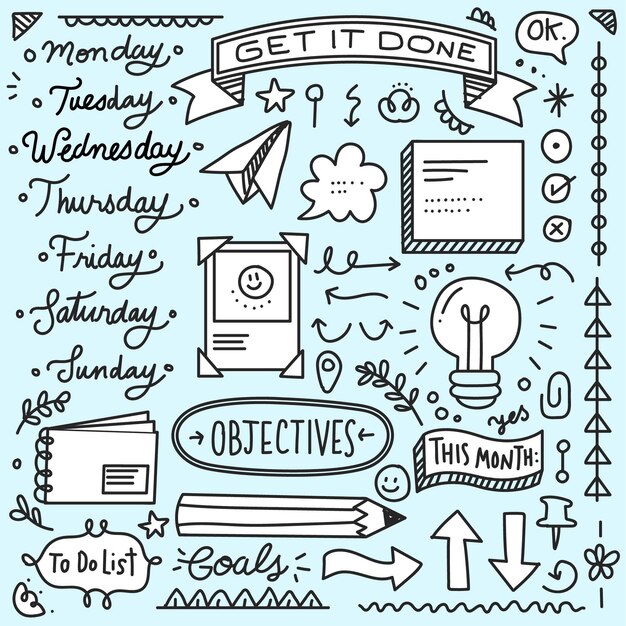 GET IT DONE
OK.
Monday
Tuesday
Wednesday
Thursday
Friday
Saturday
Sunday
OBJECTIVES
yes
THIS MONTH:
To Do List
Goals